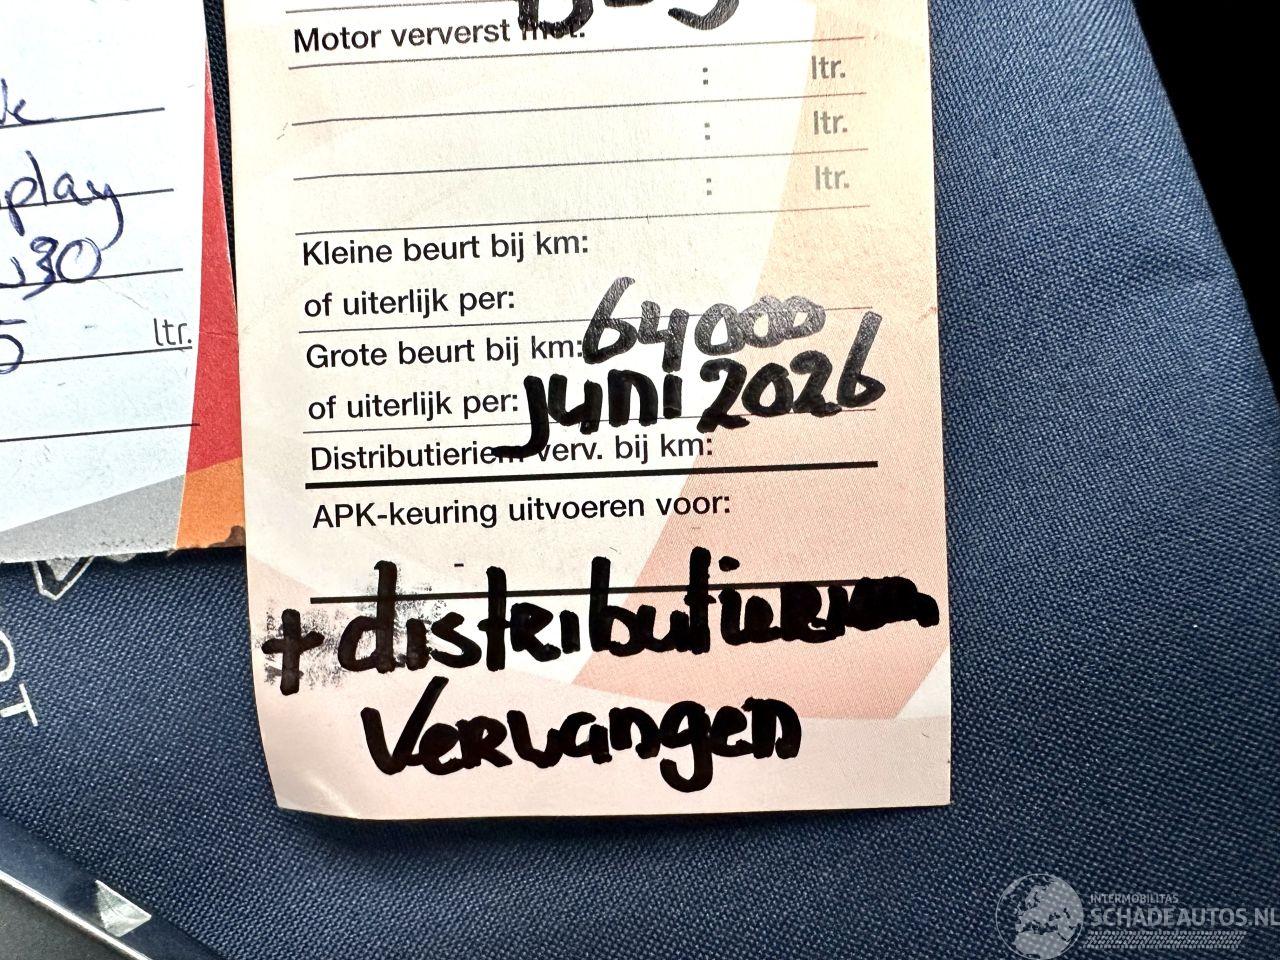 Motor ververst met:
: ltr.
: ltr.
: ltr.
Kleine beurt bij km:
of uiterlijk per:
Grote beurt bij km: 64000
of uiterlijk per: juni 2026
Distributieriem verv. bij km:
APK-keuring uitvoeren voor:
+ distributieriem
vervangen
play
30
5 ltr.
INTERMOBILITAS
SCHADEAUTOS.NL